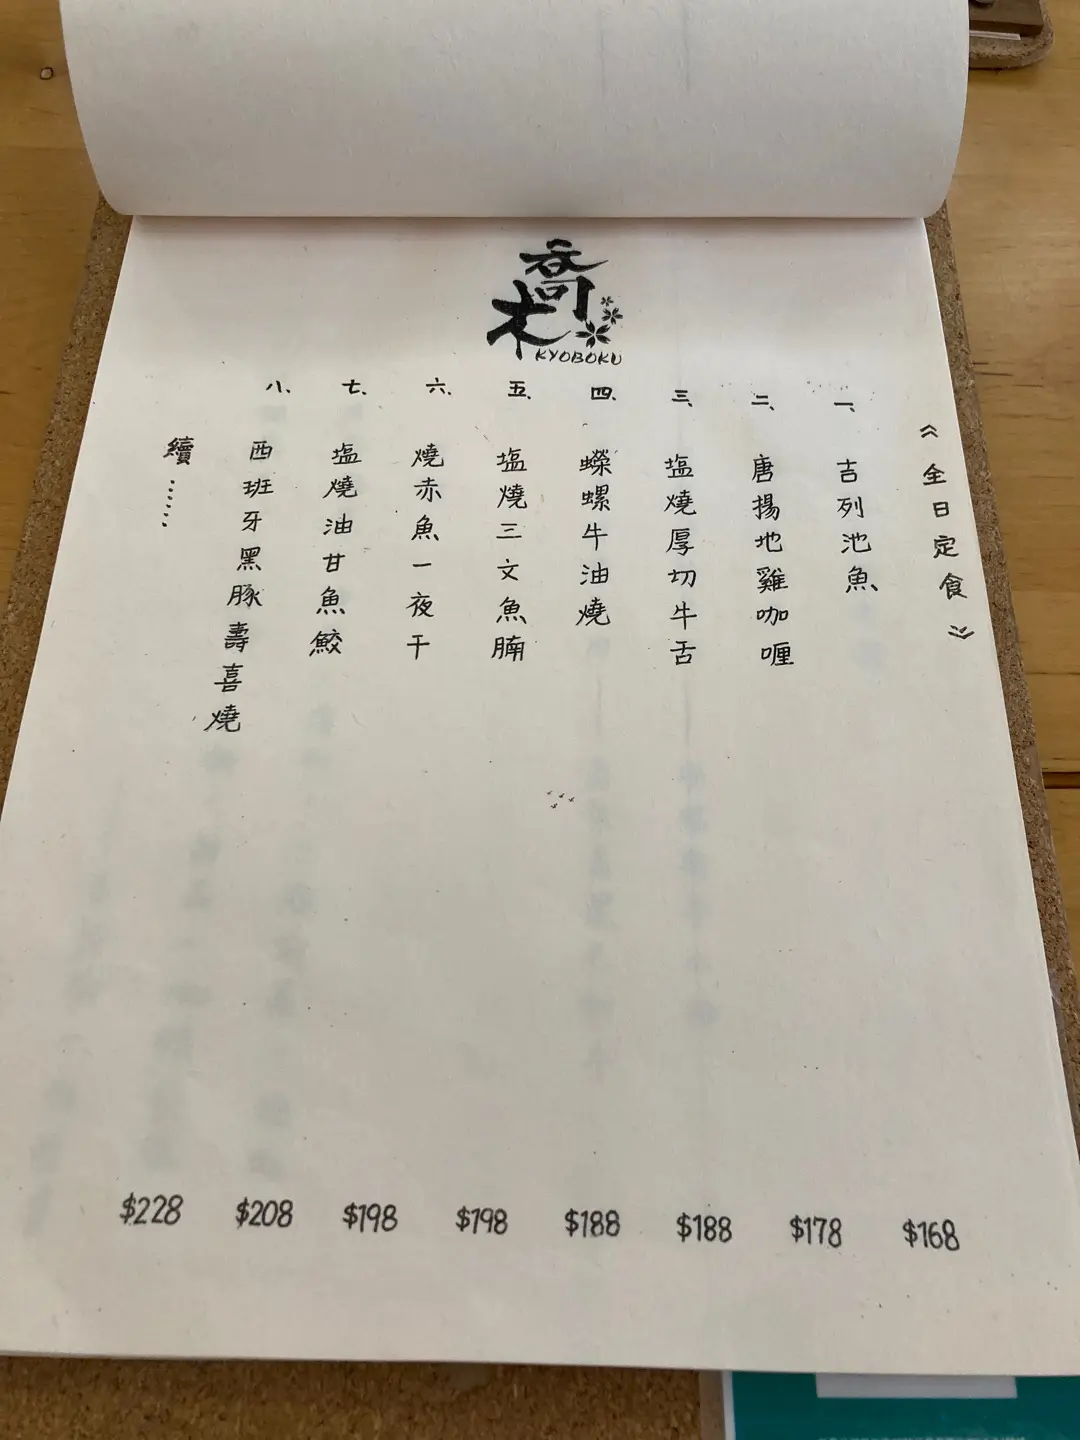 喬木
KYOBOKU
《全日定食》
一、吉列池魚 $168
二、唐揚地雞咖喱 $178
三、塩燒厚切牛舌 $188
四、蠑螺牛油燒 $188
五、塩燒三文魚腩 $198
六、燒赤魚一夜干 $198
七、塩燒油甘魚鮫 $208
八、西班牙黑豚壽喜燒 $228
續……